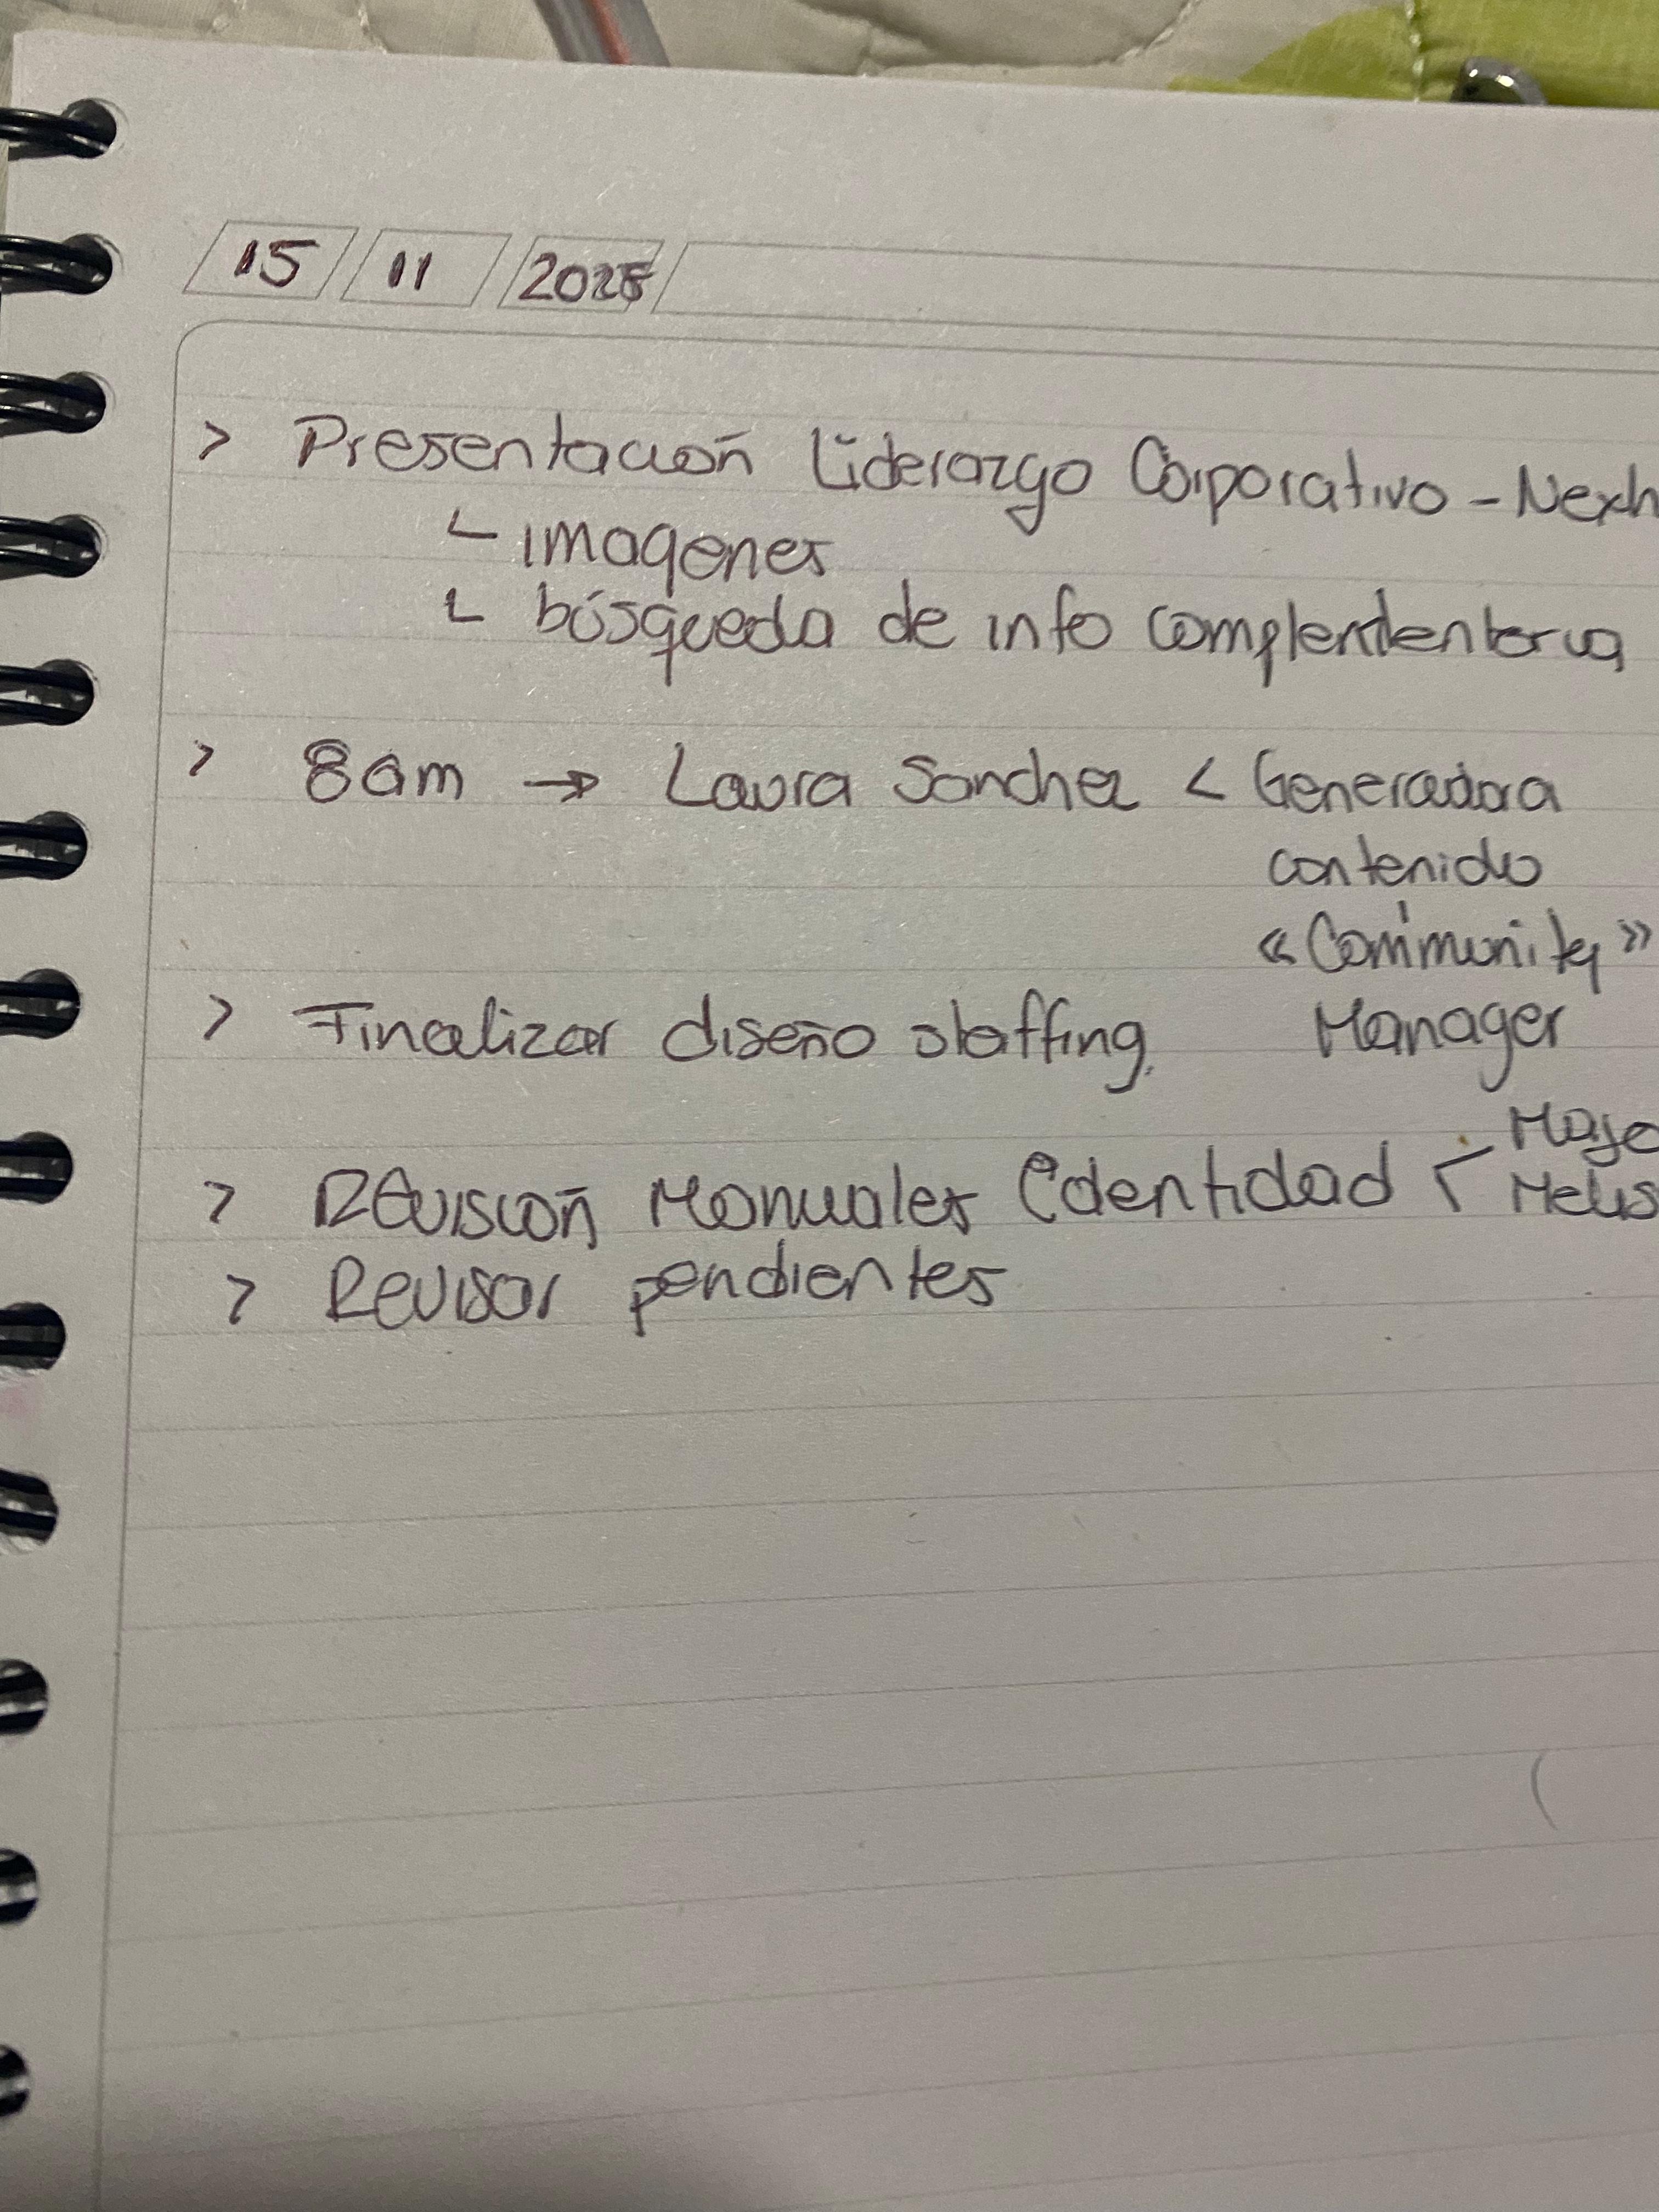 15 11 2025
> Presentación Liderazgo Corporativo - Nexh
└ imagenes
└ búsqueda de info complementaria
> 8am → Laura Sanchez < Generadora
contenido
« Community »
Manager
> Finalizar diseño staffing.
Majo
> Revisión Manuales Identidad <
Melis
> Revisar pendientes